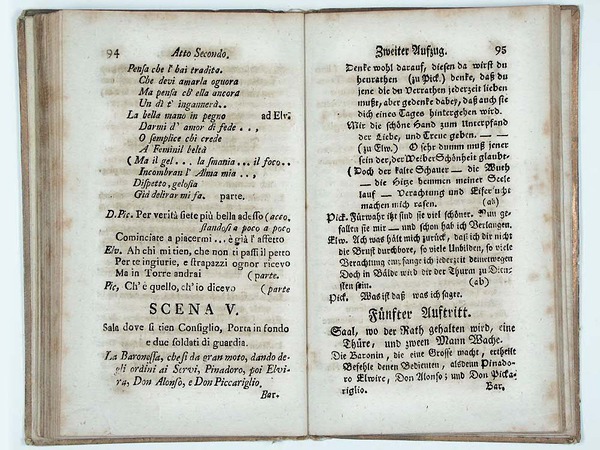 94 Atto Secondo.
Pensa che l' hai tradito.
Che devi amarla ognora
Ma pensa ch' ella ancora
Un dì t' ingannerà..
La bella mano in pegno ad Elv.
Darmi d' amor di fede . . ,
O semplice chi crede
A Feminil beltà
(Ma il gel . . . la smania . . . il foco . .
Incombran l' Alma mia . . ,
Dispetto, gelosia
Già delirar mi fa. parte.
D. Pic. Per verità siete più bella adesso (acco.
standosi a poco a poco
Cominciate a piacermi . . . è già l' affetto
Elv. Ah chi mi tien, che non ti passi il petto
Per te ingiurie, e strapazzi ognor ricevo
Ma in Torre andrai (parte.
Pic, Ch' è quello, ch' io dicevo (parte
SCENA V.
Sala dove si tien Consiglio, Porta in fondo
e due soldati di guardia.
La Baronessa, che si da gran moto, dando de-
gli ordini ai Servi, Pinadoro, poi Elvi-
ra, Don Alonso, e Don Piccariglio.
Bar.
Zweiter Aufzug. 95
Denke wohl darauf, diesen da wirst du
heurathen (zu Pick.) denke, daß du
jene die du verrathen jederzeit lieben
mußt, aber gedenke dabey, daß auch sie
dich eines Tages hintergehen wird.
Mir die schöne Hand zum Unterpfand
der Liebe, und Treue geben. — —
(zu Elw.) O sehr dumm muß jener
sein der, der Weiber Schönheit glaube.
(Doch der kalte Schauer — die Wuth
— die Hitze hemmen meiner Seele
lauf — Verachtung und Eifersucht
machen mich rasen. (ab)
Pick. Fürwahr itzt sind sie viel schöner. Nun ge-
fallen sie mir — und schon hab ich Verlangen.
Elw. Ach was hält mich zurück, daß ich dir nicht
die Brust durchbore, so viele Unbilden, so viele
Verachtung empfange ich jederzeit deinetwegen
Doch in Bälde wird dir der Thurm zu Dien-
sten sein. (ab)
Pick. Was ist daß was ich sagte.
Fünfter Auftritt.
Saal, wo der Rath gehalten wird, eine
Thüre, und zween Mann Wache.
Die Baronin, die eine Grosse macht, ertheilt
Befehle denen Bedienten, alsdenn Pinado-
ro Elwire, Don Alonso; und Don Picka-
riglio. Bar.